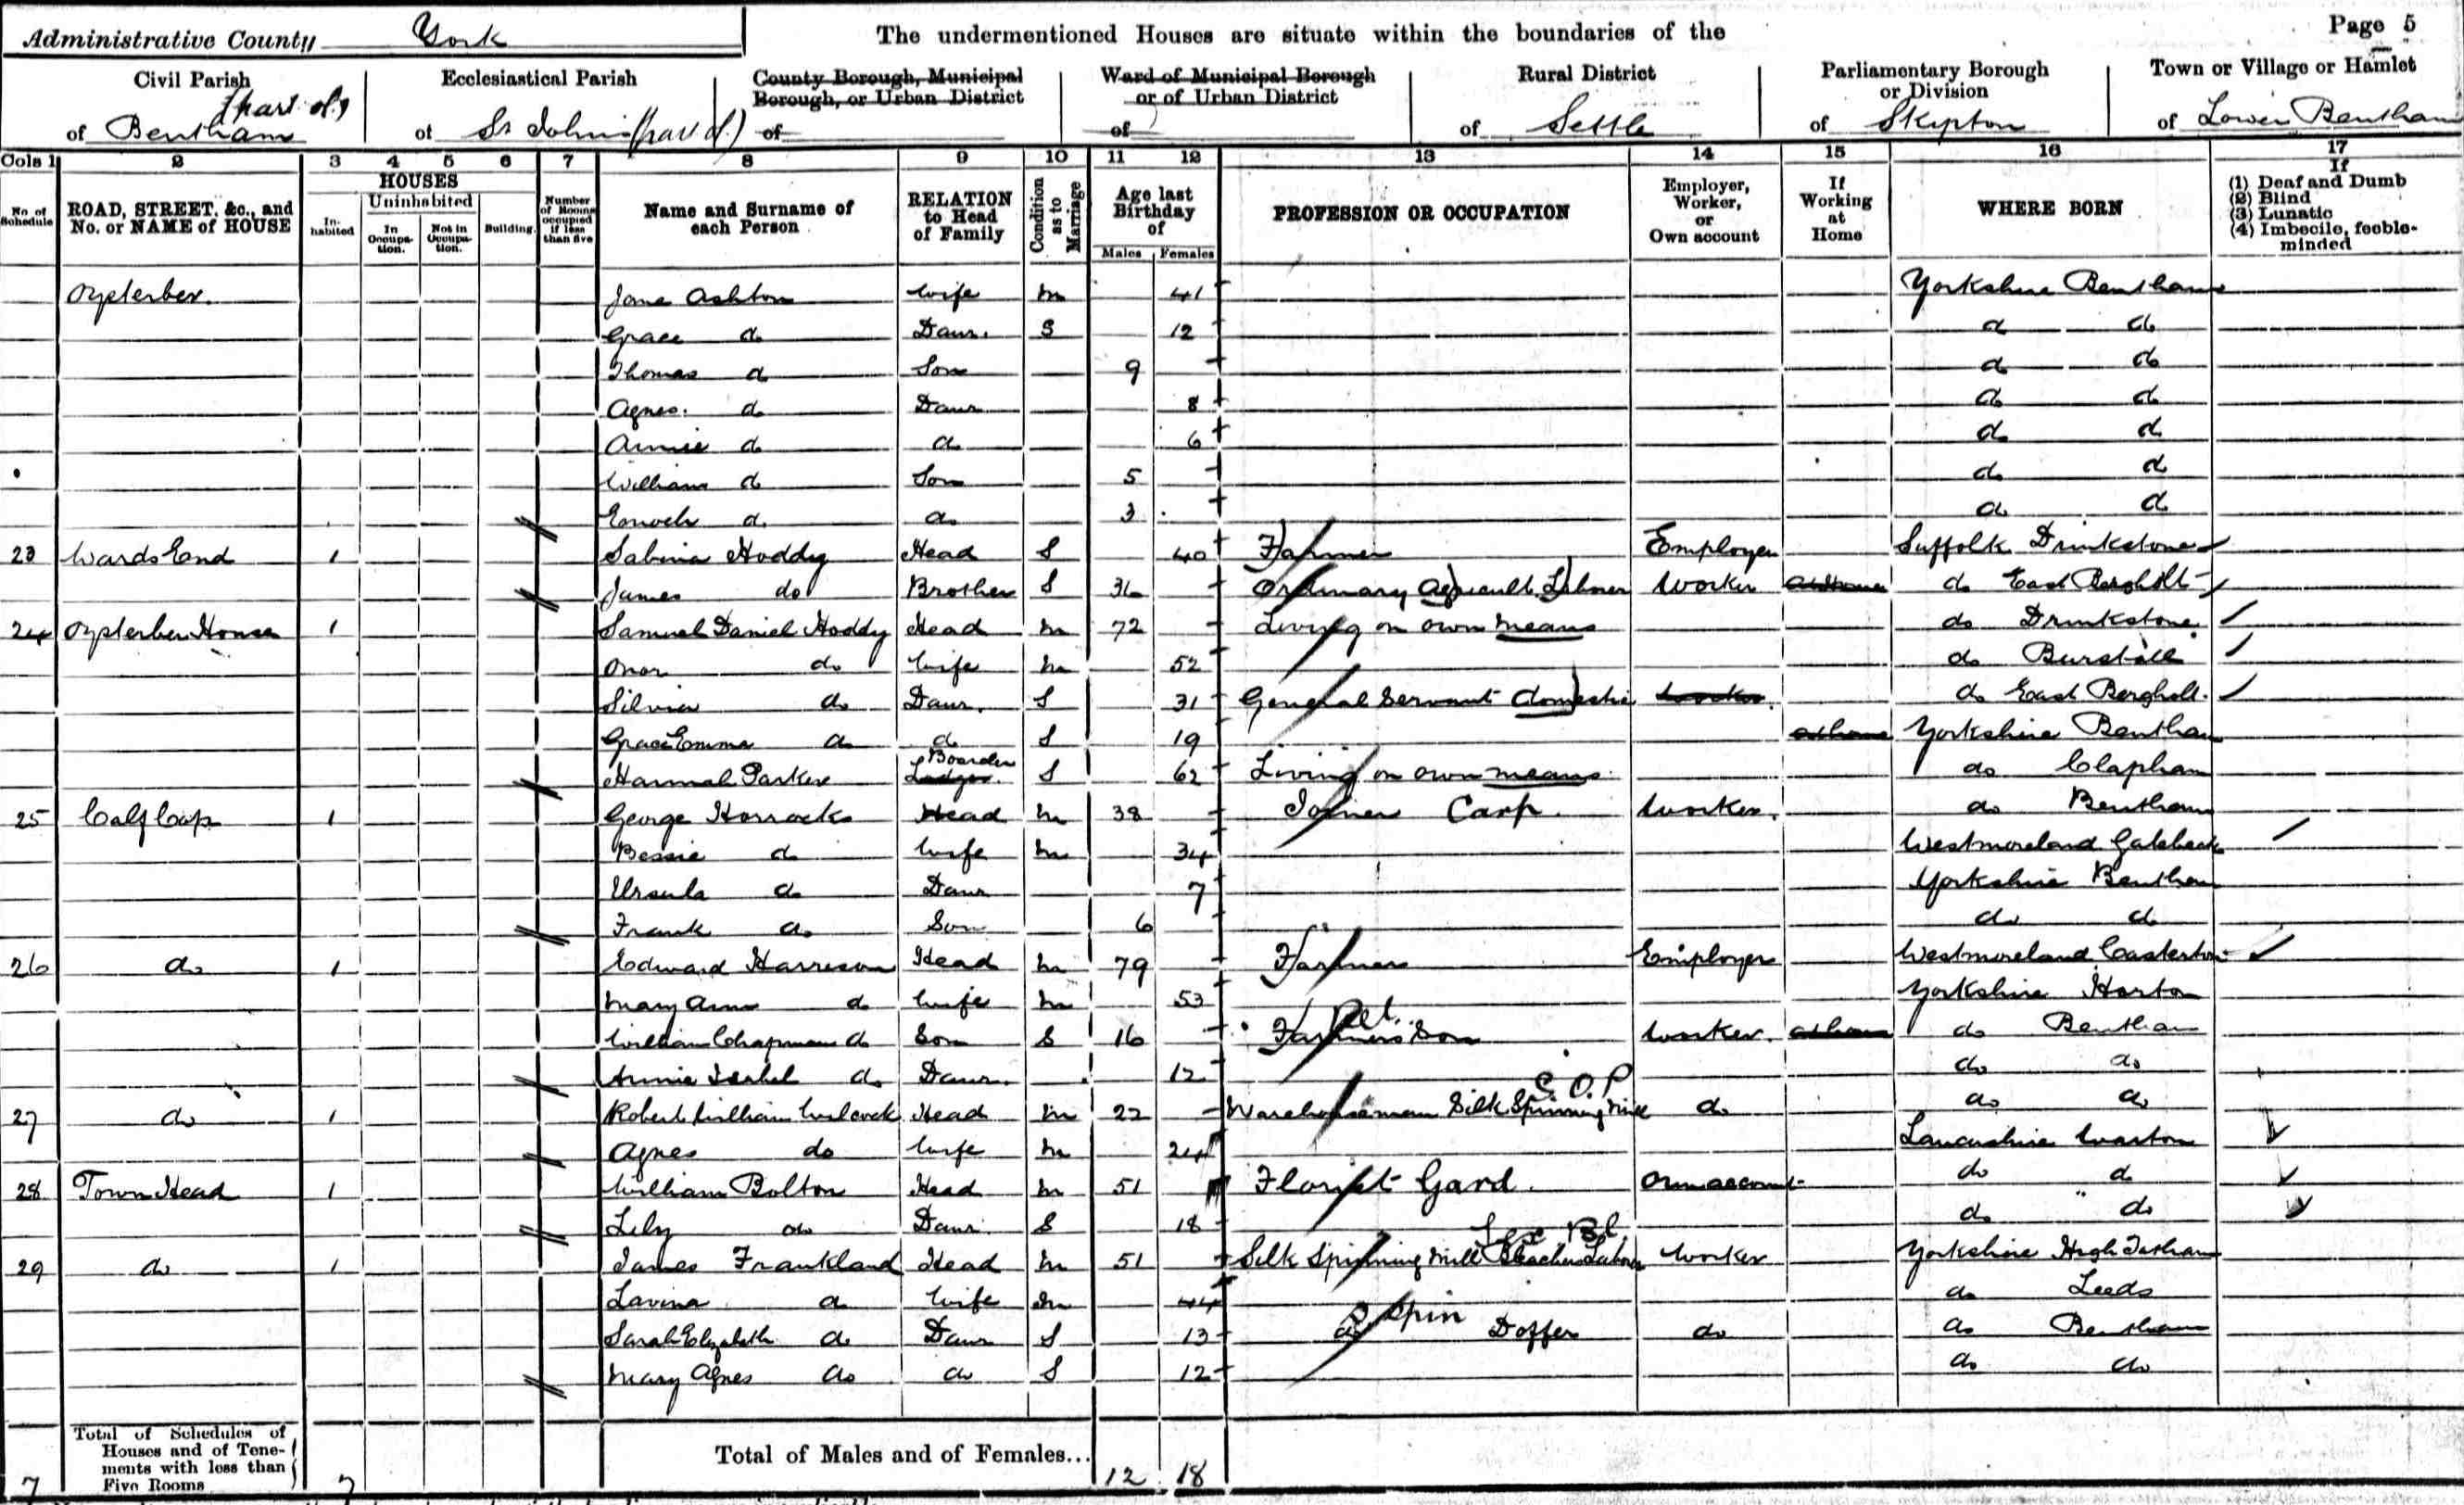 Administrative County York
The undermentioned Houses are situate within the boundaries of the
Page 5
Civil Parish of Bentham (part of)
Ecclesiastical Parish of St Johns (part of)
County Borough, Municipal Borough, or Urban District of
Ward of Municipal Borough or of Urban District of
Rural District of Settle
Parliamentary Borough or Division of Skipton
Town or Village or Hamlet of Lower Bentham
Cols 1 2 3 4 5 6 7 8 9 10 11 12 13 14 15 16 17
No. of Schedule
ROAD, STREET, &c., and No. or NAME of HOUSE
HOUSES
Inhabited
Uninhabited
In Occupation.
Not in Occupation.
Building.
Number of Rooms occupied if less than five
Name and Surname of each Person
RELATION to Head of Family
Condition as to Marriage
Age last Birthday of
Males Females
PROFESSION OR OCCUPATION
Employer, Worker, or Own account
If Working at Home
WHERE BORN
If
(1) Deaf and Dumb
(2) Blind
(3) Lunatic
(4) Imbecile, feeble-minded
Oysterber. Jane Ashton Wife M 41 Yorkshire Bentham
Grace do Daur. S 12 do do
Thomas do Son 9 do do
Agnes. do Daur 8 do do
Annie do do 6 do do
William do Son 5 do do
Enoch do do 3 do do
23 Wards End 1 Sabina Hoddy Head S 40 Farmer Employer Suffolk Drinkstone
James do Brother S 36 Ordinary Agricult. Labourer Worker At Home do East Bergholt
24 Oysterber House 1 Samuel Daniel Hoddy Head M 72 Living on own means do Drinkstone
Onor do Wife M 52 do Burstall
Silvia do Daur. S 31 General Servant domestic Worker. do East Bergholt.
Grace Emma do do S 19 at home Yorkshire Bentham
Hannah Parker Lodger. Boarder S 62 Living on own means. do Clapham
25 Calf Cop 1 George Horrocks Head M 38 Joiner Carp. Worker. do Bentham
Bessie do Wife M 34 Westmoreland Gatebeck
Ursula do Daur 7 Yorkshire Bentham
Frank do Son 6 do do
26 do 1 Edward Harrison Head M 79 Farmer Employer Westmoreland Casterton
Mary Ann do Wife M 53 Yorkshire Horton
William Chapman do Son S 16 Farmers Son Rel. Worker. at home do Bentham
Annie Isabel do Daur. 12 do do
27 do 1 Robert William Wilcock Head M 22 Warehouseman Silk Spinning Mill S.O.P do do do
Agnes do Wife M 24 Lancashire Warton
28 Town Head 1 William Bolton Head M 51 Florist Gard. Own account do do
Lily do Daur. S 18 do do
29 do 1 James Frankland Head M 51 Silk Spinning Mill Bleachers Labourer Worker Yorkshire High Tatham
Lavina do Wife M 44 do Leeds
Sarah Elizabeth do Daur S 13 do Spin Doffer do do Bentham
Mary Agnes do do S 12 do do
7 Total of Schedules of Houses and of Tenements with less than Five Rooms 7
Total of Males and of Females... 12 18